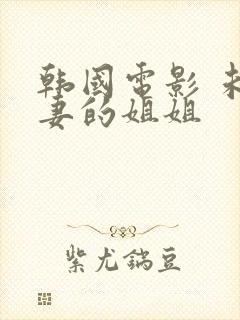 韩國電影 未
妻的姐姐
紫尤鍴豆